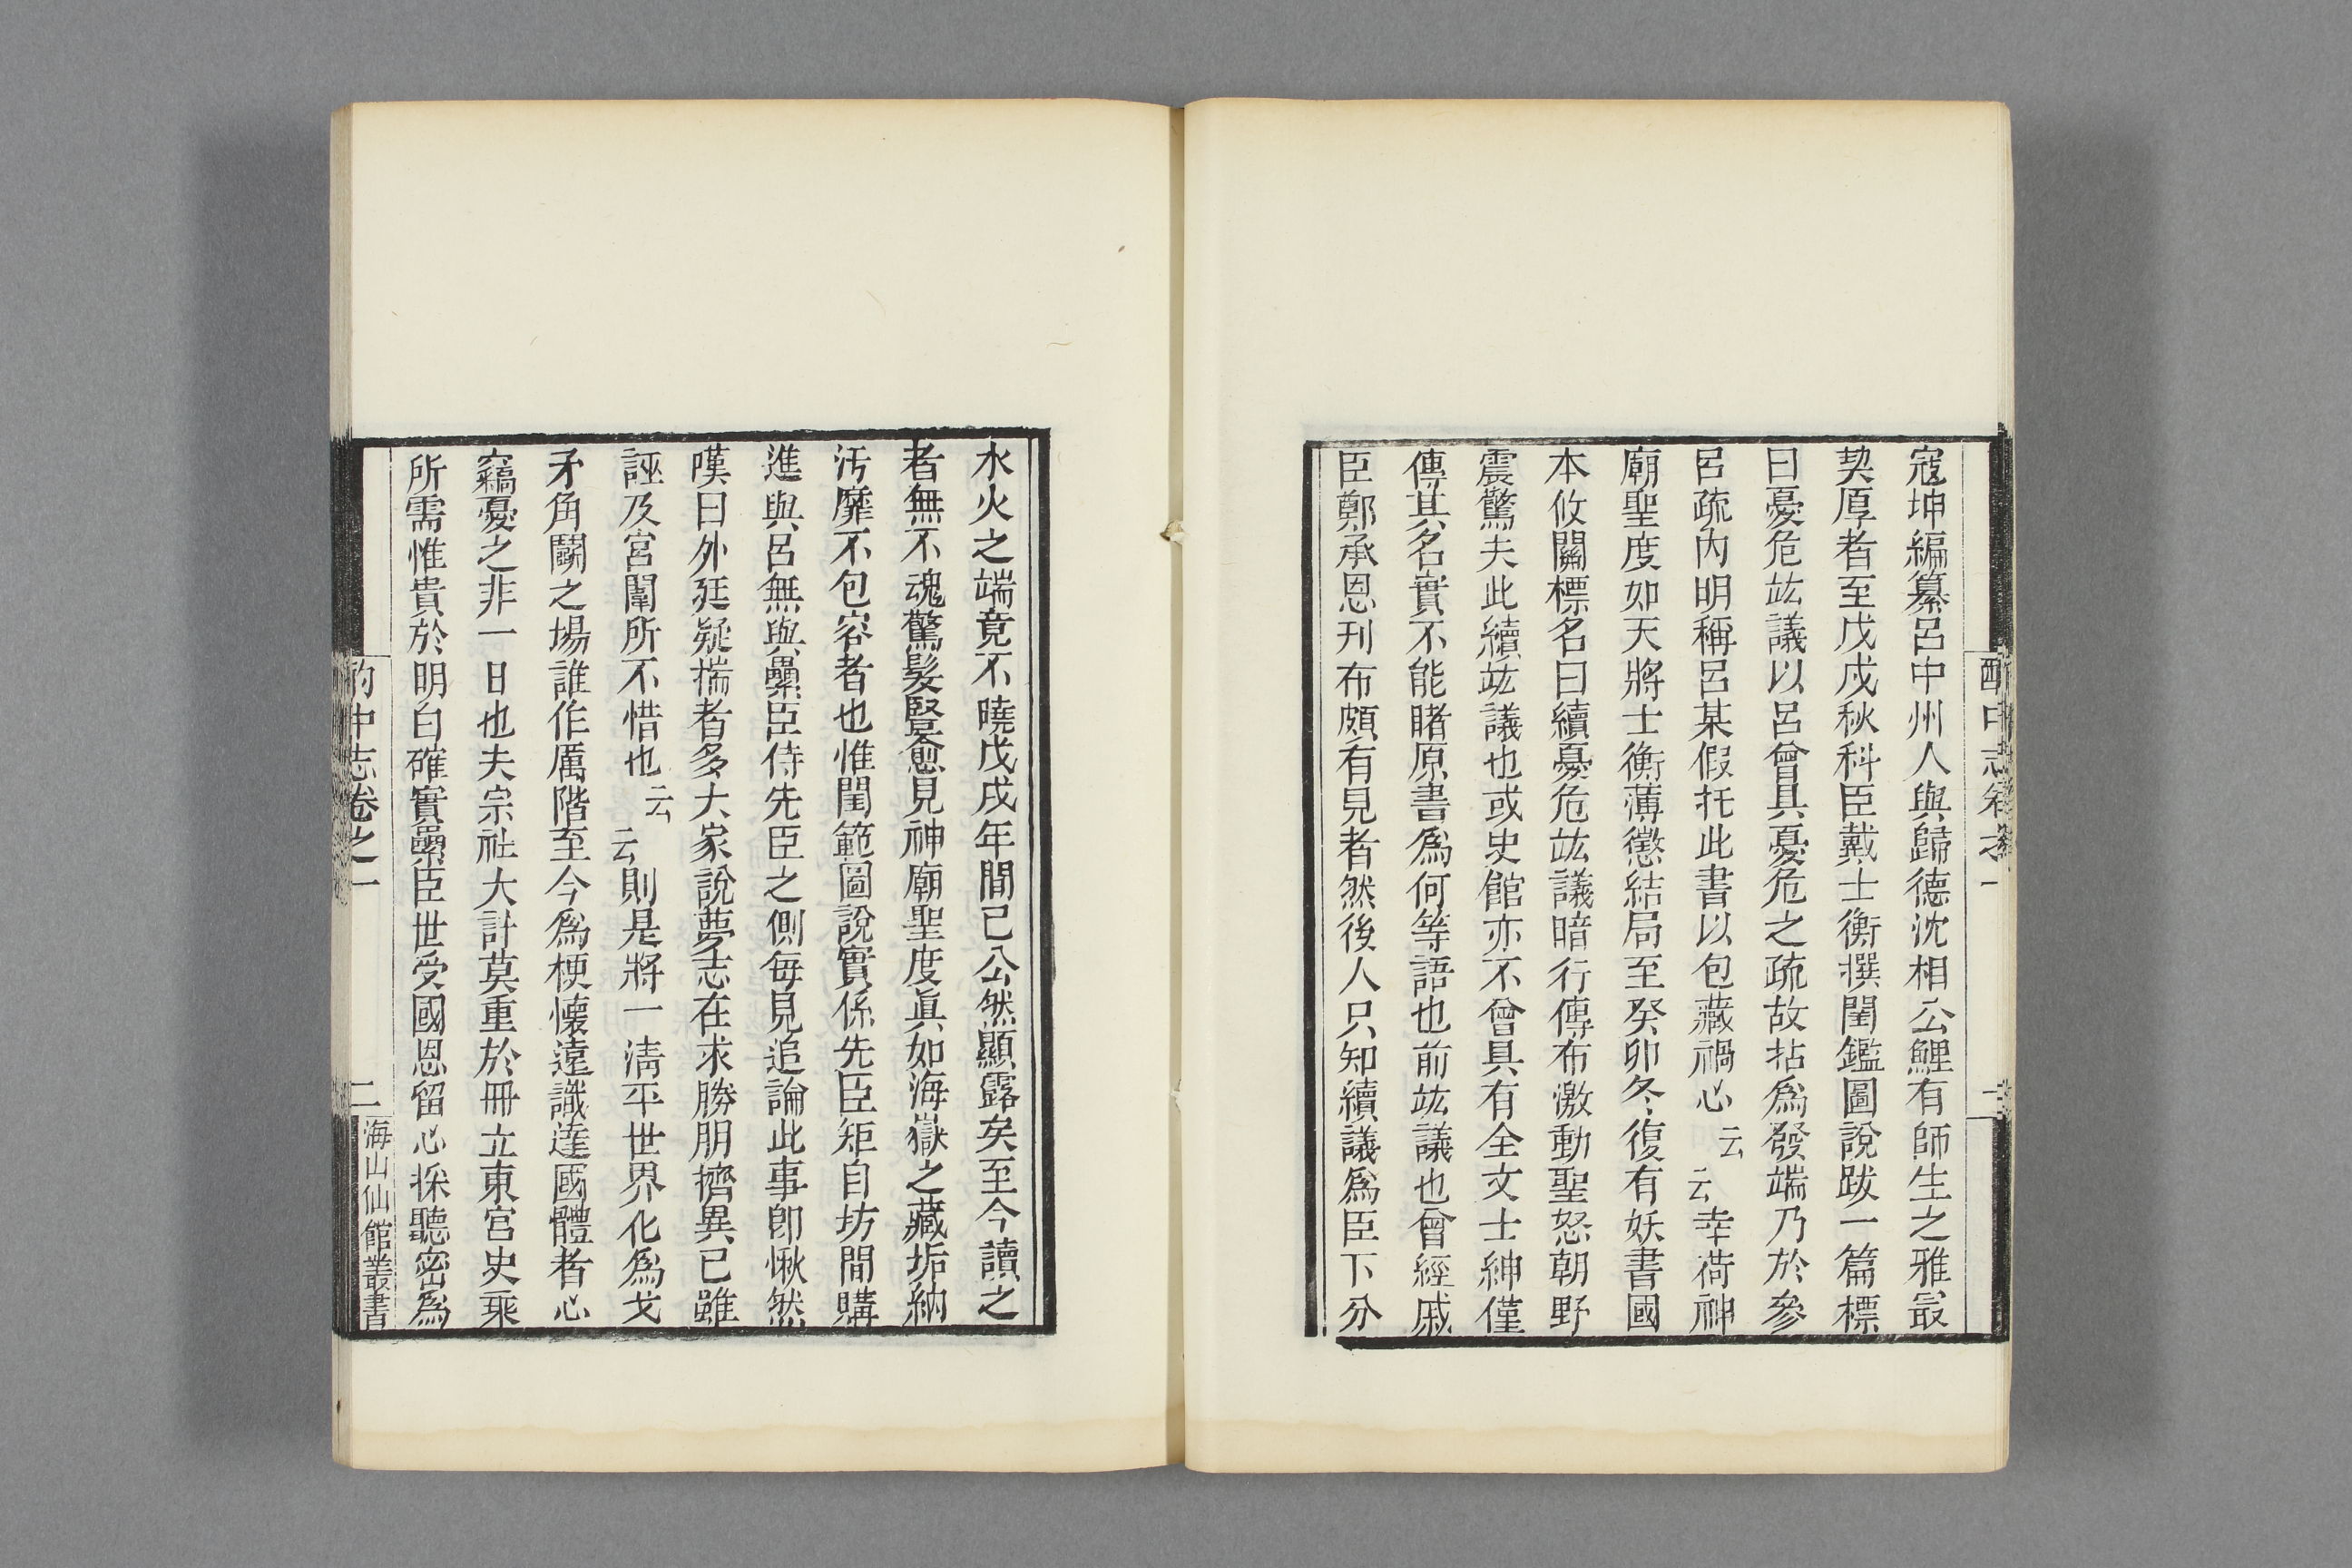 寇坤編纂呂中州人與歸德沈相公鯉有師生之雅最
契厚者至戊戌秋科臣戴士衡撰閨鑑圖說跋一篇標
曰憂危竑議以呂曾具憂危之疏故拈爲發端乃於參
呂疏內明稱呂某假托此書以包藏禍心云云幸荷神
廟聖度如天將士衡薄懲結局至癸卯冬復有妖書國
本攸關標名曰續憂危竑議暗行傳布激動聖怒朝野
震驚夫此續竑議也或史館亦不曾具有全文士紳僅
傳其名實不能睹原書爲何等語也前竑議也曾經戚
臣鄭承恩刊布頗有見者然後人只知續議爲臣下分
水火之端竟不曉戊戌年間已公然顯露矣至今讀之
者無不魂驚髮豎愈見神廟聖度眞如海嶽之藏垢納
汚靡不包容者也惟閨範圖說實係先臣矩自坊間購
進與呂無與纍臣侍先臣之側每見追論此事卽愀然
嘆曰外廷疑揣者多大家說夢志在求勝朋擠異已雖
誣及宮闈所不惜也云云則是將一淸平世界化爲戈
矛角鬭之場誰作厲階至今爲梗懷遠識達國體者心
竊憂之非一日也夫宗社大計莫重於冊立東宮史乘
所需惟貴於明白確實纍臣世受國恩留心採聽密爲
酌中志卷之一
二
海山仙館叢書